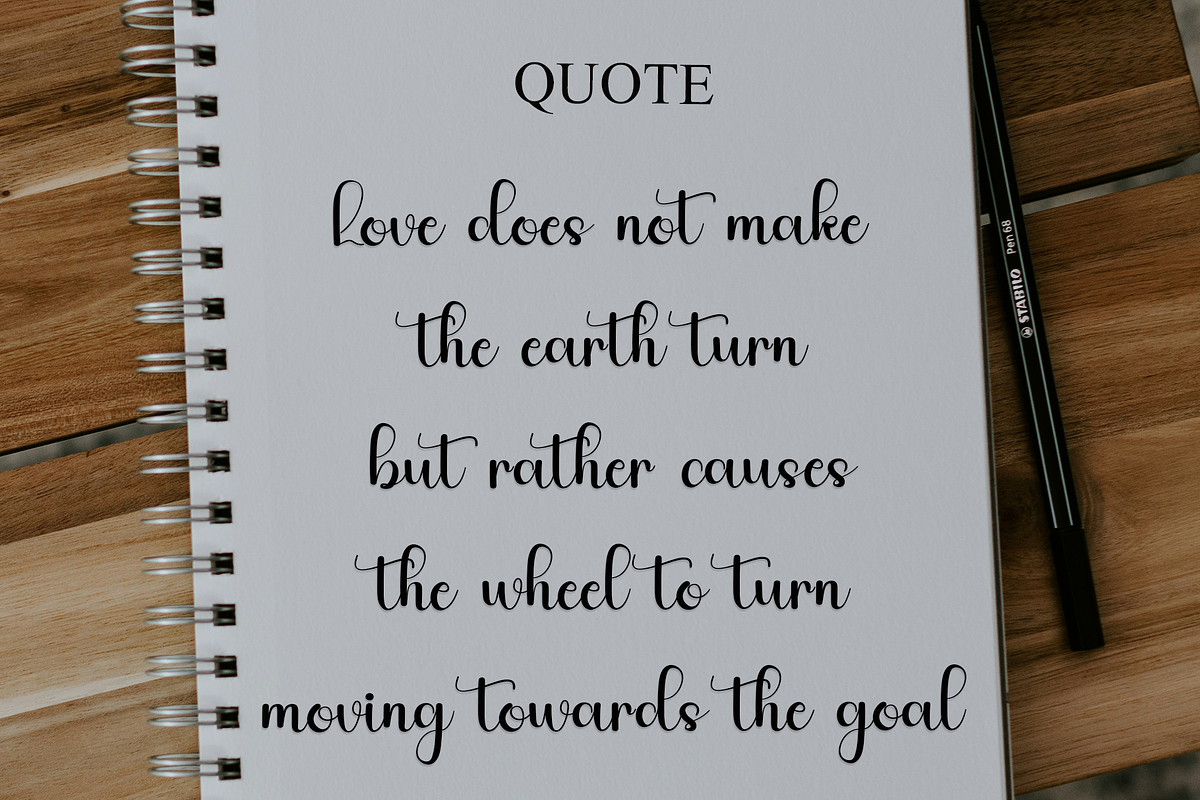 QUOTE
Love does not make
the earth turn
but rather causes
the wheel to turn
moving towards the goal
STABILO Pen 68